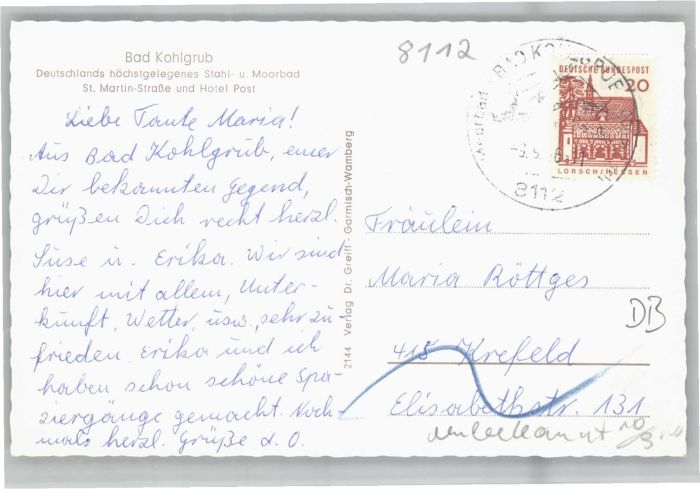 Bad Kohlgrub
Deutschlands höchstgelegenes Stahl- u. Moorbad
St. Martin-Straße und Hotel Post
Liebe Tante Maria!
Aus Bad Kohlgrub, einer
Dir bekannten Gegend,
grüßen Dich recht herzl.
Suse u. Erika. Wir sind
hier mit allem, Unter-
kunft, Wetter, usw., sehr zu-
frieden. Erika und ich
haben schon schöne Spa-
ziergänge gemacht. Noch-
mals herzl. Grüße d. O.
2144 Verlag Dr. Greiff · Garmisch-Wamberg
8112
BAD KOHLGRUB
8112
DEUTSCHE BUNDESPOST
20
LORSCH/HESSEN
Fräulein
Maria Röttges
DB
415 Krefeld
Elisabethstr. 131
unbekannt